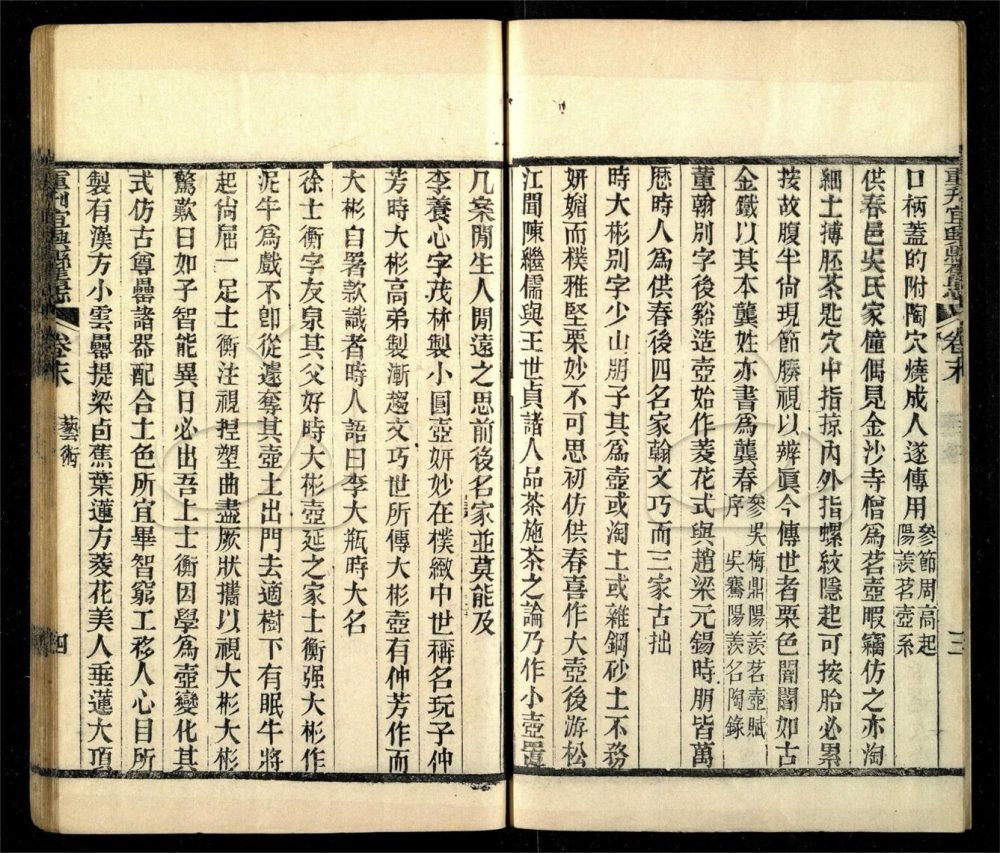 重刊宜興縣舊志
卷末
三
口柄蓋的附陶穴燒成人遂傳用
參節周高起
陽羨茗壺系
供春邑吳氏家僮偶見金沙寺僧爲茗壺暇竊仿之亦淘
細土搏胚茶匙穴中指掠內外指螺紋隱起可按胎必累
按故腹半尙現節腠視以辨眞今傳世者栗色闇闇如古
金鐵以其本龔姓亦書爲龔春
參吳梅鼎陽羨茗壺賦
序 吳騫陽羨名陶錄
董翰別字後谿造壺始作菱花式與趙梁元錫時朋皆萬
歷時人爲供春後四名家翰文巧而三家古拙
時大彬別字少山朋子其爲壺或淘土或雜鋼砂土不務
姸媚而樸雅堅栗妙不可思初仿供春喜作大壺後游松
江聞陳繼儒與王世貞諸人品茶施茶之論乃作小壺置
几案閒生人閒遠之思前後名家並莫能及
李養心字茂林製小圓壺姸妙在樸緻中世稱名玩子仲
芳時大彬高弟製漸趨文巧世所傳大彬壺有仲芳作而
大彬自署款識者時人語曰李大瓶時大名
徐士衡字友泉其父好時大彬壺延之家士衡强大彬作
泥牛爲戲不卽從遽奪其壺土出門去適樹下有眠牛將
起尙屈一足士衡注視捏塑曲盡厥狀攜以視大彬大彬
驚歎曰如子智能異日必出吾上士衡因學爲壺變化其
式仿古尊罍諸器配合土色所宜畢智窮工移人心目所
製有漢方小雲罍提梁卣蕉葉蓮方菱花美人垂蓮大頂
重刊宜興縣舊志
卷末
藝術
四